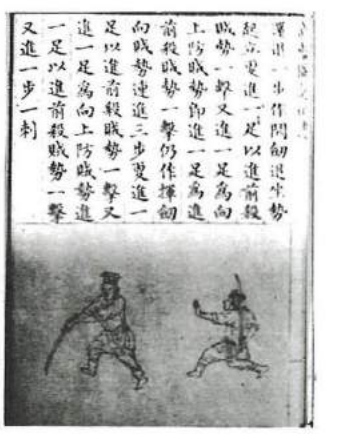 進一步作閃劒退坐勢
起立更進一足以進前殺
賊勢一擊又進一足爲向
上防賊勢即進一足爲進
前殺賊勢一擊仍作揮劒
向賊勢連進三步更進一
足以進前殺賊勢一擊又
進一足爲向上防賊勢進
一足以進前殺賊勢一擊
又進一步一刺